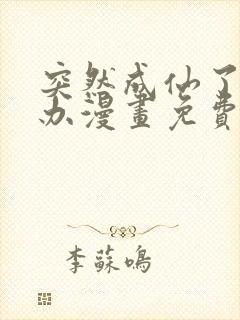 突然成仙了
办漫畫免費
李蘇鳴